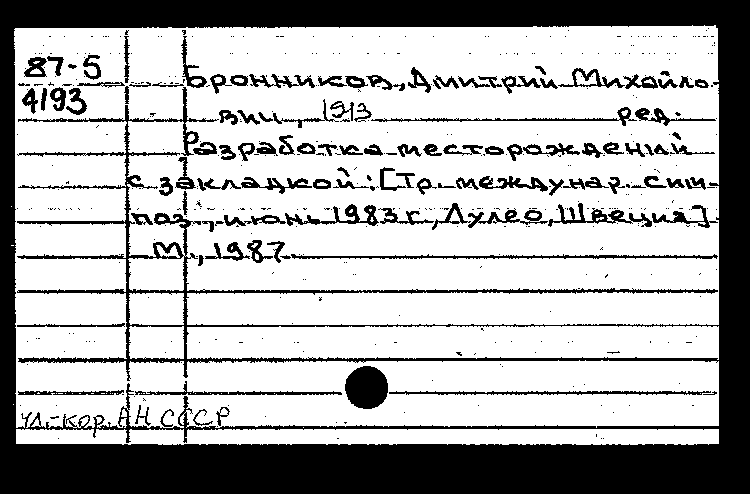 87-5
4193
Бронников, Дмитрий Михайло-
вич, 1913 ред.
Разработка месторождений
с закладкой: [Тр. междунар. сим-
поз., июнь 1983 г., Лулео, Швеция]
М., 1987.
чл.-кор. АН СССР